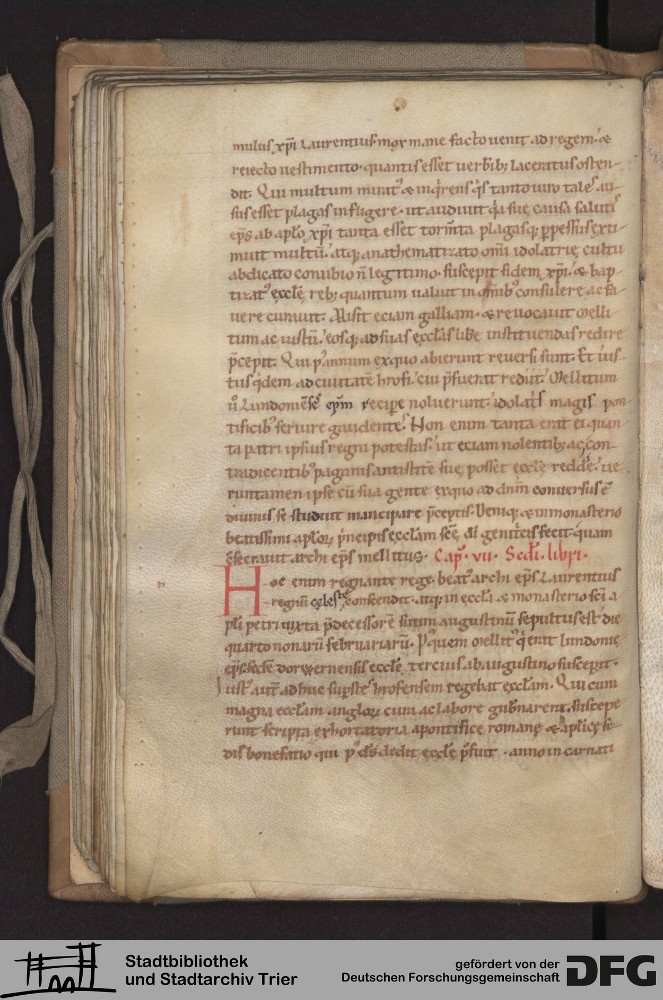 mulus xp̄i Laurentius mox mane facto venit ad regem. &
reiecto uestimento. quantis esset uerberib; laceratus osten-
dit. Qui multum mirat᷒ & inq̇rens q̇s tanto uiro tales au-
sus esset plagas infligere. ut audiuit q̇a suę causa salutis
ep̄s ab ap̄lo xp̄i tanta esset torm̄ta plagasq; ꝑpessus. exti-
muit multū. atq; anathematizato om̄i idolatrię cultu
abdicato conubio n̄ legitimo. suscepit fidem xp̄i. & bap-
tizat᷒ ęcclę̄ reb; quantum ualuit in om̄ib᷒ consulere ac fa-
uere curauit. Misit eciam galliam. & reuocauit melli-
tum ac iustū. eosq; ad suas ęccl̄as libe instituendas redire
p̄cepit. Qui p᷒ annum ex quo abierunt reuersi sunt. Et ius-
tus q̇dem ad ciuitatē hrofi. cui p̄fuerat rediit. Mellitum
ū Lundoniēse ep̄m recipe noluerunt. idolatris magis pon-
tificib᷒ seruire gaudentes. Non enim tanta erat ei. quan
ta patri ipsius regni potestas. ut eciam nolentib; ac con-
tradicentib᷒ paganis antistitē suę posset ęcclę̄ reddē. ue-
runtamen ipse cū sua gente ex quo ad dn̄m conuersus ē
diuinis se studuit mancipare p̄ceptis. Deniq; & in monasterio
beatissimi ap̄loꝝ p̄ncipis ęccl̄am scę̄ di genitricis fecit. quam
ꝯsecrauit archi ep̄s mellitus. Cap̄. vii. Scdi. libri.
Hoc enim regnante rege. beat᷒ archi ep̄s Laurentius
regnū cęleste conscendit. atq; in ęccl̄a & monasterio sc̄i a
pl̄i petri iuxta p̄decessorē suum augustinū sepultus est. die
quarto nonarū februariarū. P᷒ quem mellit᷒ q̇ erat lundonię
ep̄s. sedē dorwernensis ęcclę̄ tercius ab augustino suscepit.
Iust᷒ aūt adhuc supstes hrofensem regebat ęccl̄am. Qui cum
magna ęccl̄am angloꝝ cura ac labore gub̄narent. suscepe
runt scripta exhortatoria a pontifice romanę & aplicę se
dis bonefatio qui p᷒ ds̄dedit ęcclę̄ p̄fuit. anno incarnati
Stadtbibliothek
und Stadtarchiv Trier
gefördert von der
Deutschen Forschungsgemeinschaft
DFG